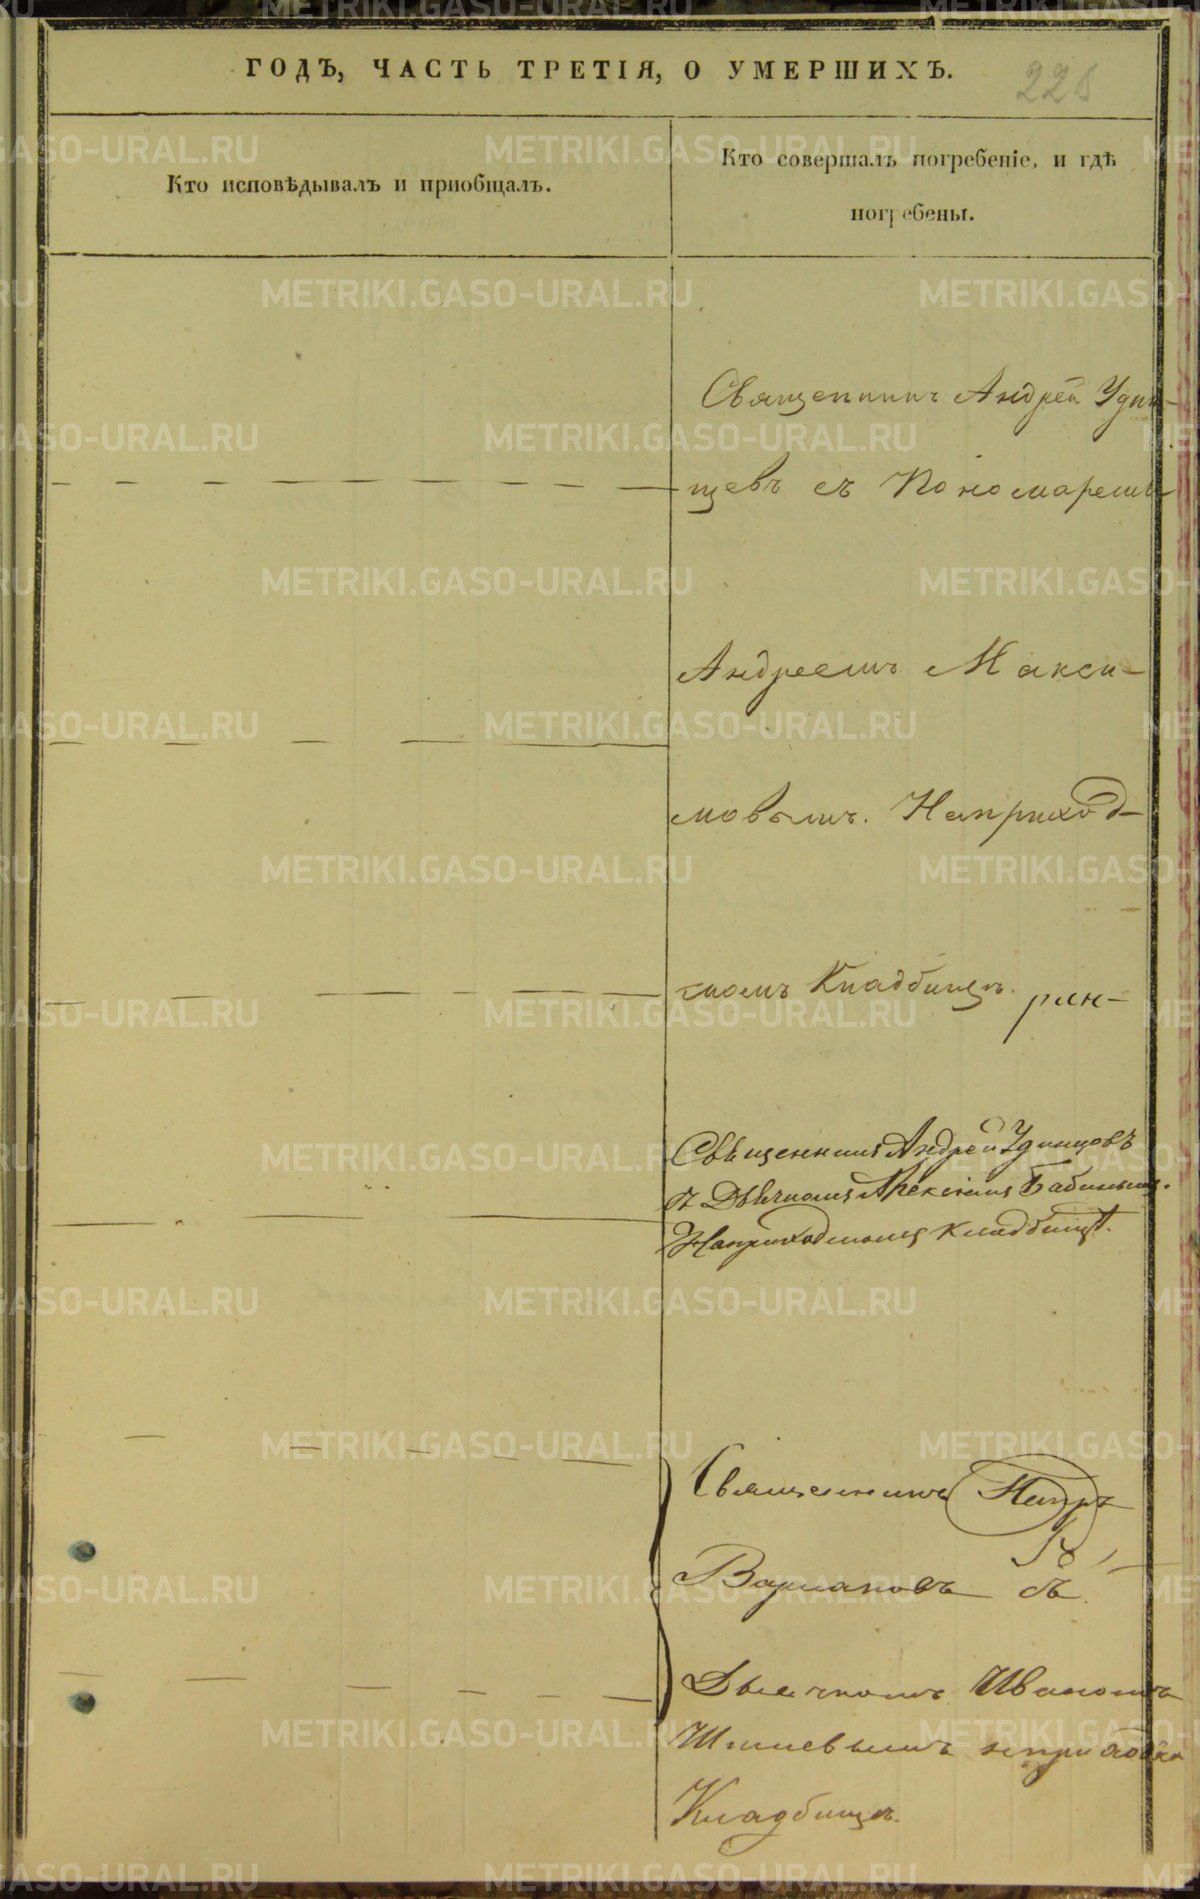 ГОДЪ, ЧАСТЬ ТРЕТІЯ, О УМЕРШИХЪ.
Кто исповѣдывалъ и пріобщалъ.
Кто совершалъ погребеніе, и гдѣ
погребены.
Священникъ Андрей Удин-
цевъ съ Пономаремъ
Андреемъ Макси-
мовымъ. На приход-
скомъ Кладбищѣ.
Священникъ Андрей Удинцовъ
съ Дьячкомъ Алексіемъ Бабинымъ.
На приходскомъ кладбищѣ.
Священникъ Петръ
Варлаковъ съ
Дьячкомъ Иваномъ
Кладбищѣ.
METRIKI.GASO-URAL.RU